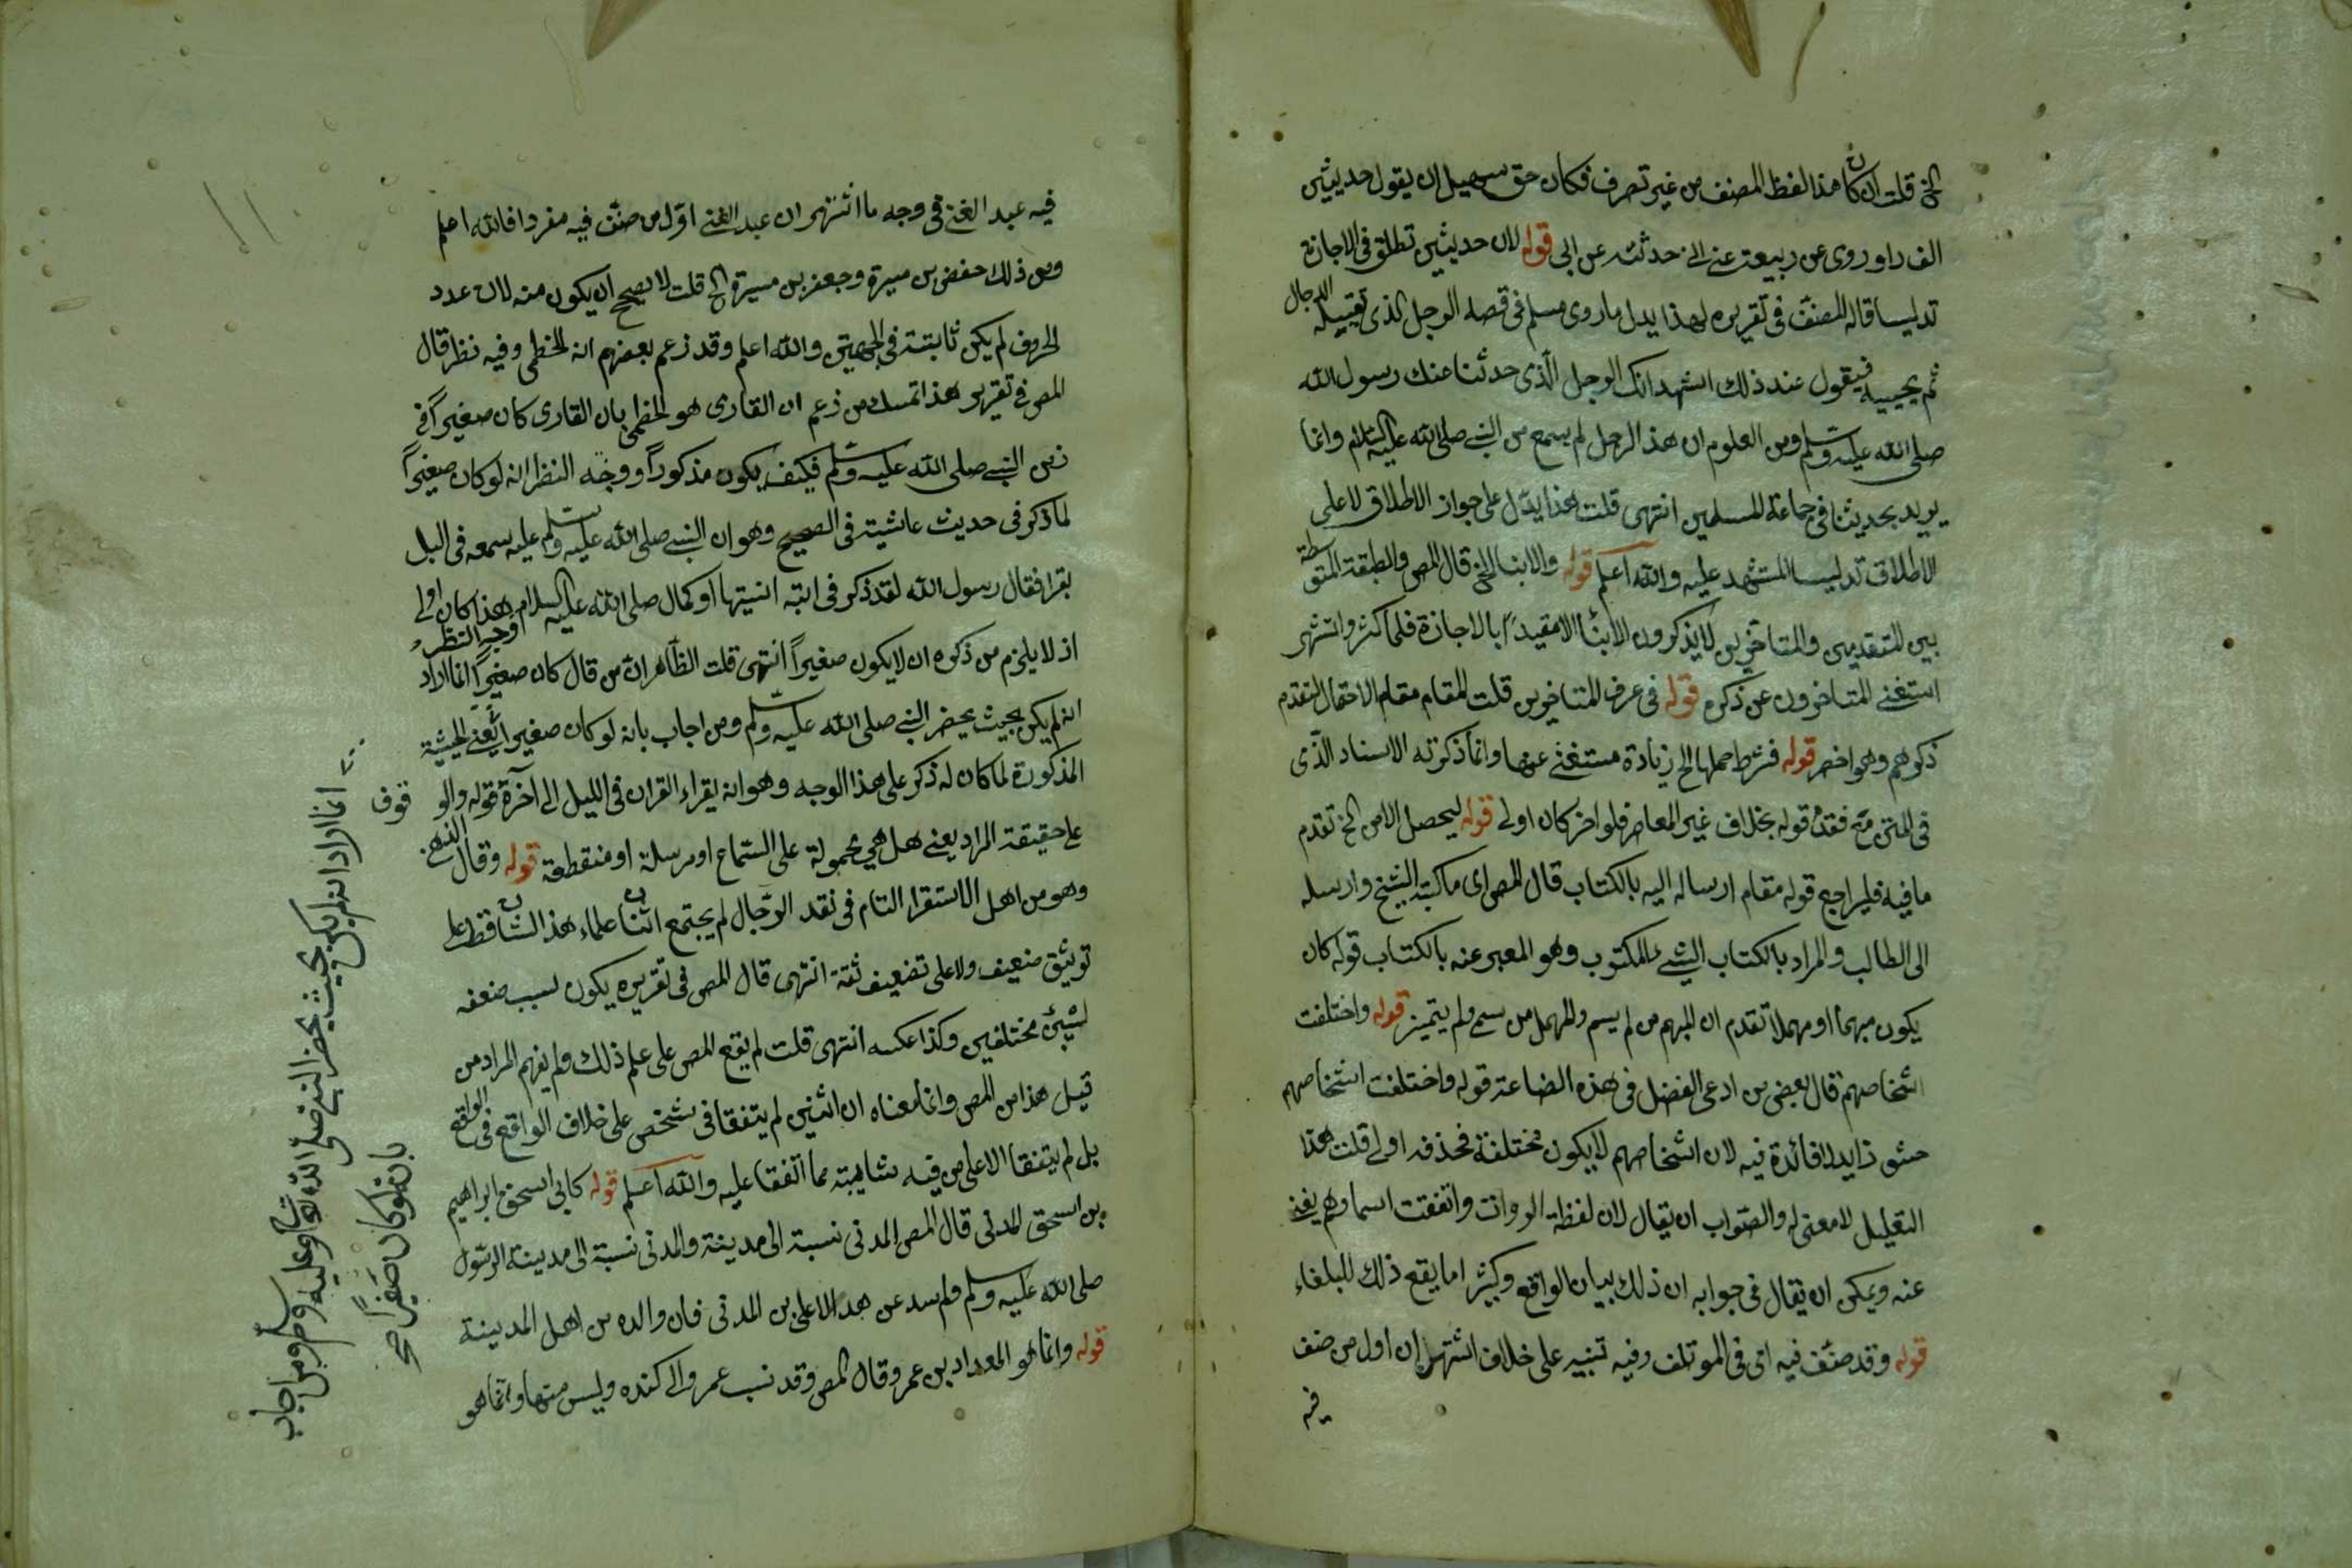 الخ قلت ان كان هذا لفظ المصنف من غير تصرف فكان حق سهيل ان يقول حديثين
الف راو روى عن ربيعة عنى انى حدثته عن ابى قوله لان حديثين تطلق فى الاجازة
تدليسا قاله المصنف فى تقريره لهذا يدل ما روى مسلم فى قصة الرجل الذى يقتله الدجال
ثم يحييه فيقول عند ذلك اشهد انك الرجل الذى حدثنا عنك رسول الله
صلى الله عليه وسلم ومن العلوم ان هذا الرجل لم يسمع من النبى صلى الله عليه السلام وانما
يريد بحديثنا فى جماعة المسلمين انتهى قلت هذا يدل على جواز الاطلاق لا على
الاطلاق تدليسا المستشهد عليه والله اعلم قوله والابنا الخ قال المص والطبقة المتوسطة
بين المتقدمين والمتاخرين لا يذكرون الابنأ الا مقيداً بالاجازة فلما كثر واشتهر
استغنى المتاخرون عن ذكره قوله فى عرف المتاخرين قلت المقام مقام الاحتمال لتقدم
ذكرهم وهو اخصر قوله فشرط حملها الخ زيادة مستغنى عنها وانما ذكرته الاسناد الذى
فى المتن مع فقد قوله بخلاف غير المعاصر فلو اخر كان اولى قوله ليحصل الامن الخ تقدم
ما فيه فليراجع قوله مقام ارساله اليه بالكتاب قال المص اى ما كتبه الشيخ وارسله
الى الطالب والمراد بالكتاب الشئ المكتوب وهو المعبر عنه بالكتاب قوله كان
يكون مبهما او مهملا تقدم ان المبهم من لم يسم والمهمل من سمى ولم يتميز قوله واختلفت
اشخاصهم قال بعض من ادعى الفضل فى هذه الضاعة قوله واختلفت اشخاصهم
حشو زايد لا فائدة فيه لان اشخاصهم لا يكون مختلفة فحذفه اولى قلت هذا
التعليل لا معنى له والصواب ان يقال لان لفظة الروات واتفقت اسماوهم يغنى
عنه ويمكن ان يقال فى جوابه ان ذلك بيان الواقع وكثيرا ما يقع ذلك للبلغاء
قوله وقد صنف فيه اى فى الموتلف وفيه تنبيه على خلاف اشتهر ان اول من صنف
فيه
فيه عبد الغنى فى وجه ما اشتهر ان عبد الغنى اول من صنف فيه مفردا فالله اعلم
ومن ذلك حفص بن ميسرة وجعفر بن ميسرة الخ قلت لا يصح ان يكون منه لان عدد
الحروف لم يكن ثابتة فى الجهتين والله اعلم وقد زعم بعضهم انه الخطمى وفيه نظر قال
المص فى تقرير هذا تمسك من زعم ان القارى هو الخطمى بان القارى كان صغيراً فى
زمن النبى صلى الله عليه وسلم فكيف يكون مذكوراً ووجه النظر انه لو كان صغيراً
لما ذكر فى حديث عايشة فى الصحيح وهو ان النبى صلى الله عليه وسلم عليه سمعه فى اليل
يقرا فقال رسول الله لقد ذكر فى اية انسيتها او كما قال صلى الله عليه السلام هذا كان اولى وجه النظر
اذ لا يلزم من ذكره ان لا يكون صغيراً انتهى قلت الظاهر ان من قال كان صغيراً انما اراد
انه لم يكن بحيث يحضر النبى صلى الله عليه وسلم ومن اجاب بانه لو كان صغيرا يعنى الحيثية
المذكورة لما كان له ذكر على هذا الوجه وهو انه يقراء القران فى الليل الى آخرة قوله والو قوف
على حقيقة المراد يعنى هل هى محمولة على السماع او مرسلة او منقطعة قوله وقال الذهبى
وهو من اهل الاستقرار التام فى نقد الرجال لم يجتمع اثنان علماء هذا الشان قط على
توثيق ضعيف ولا على تضعيف ثقة انتهى قال المص فى تقريره يكون لسبب ضعفه
لشيئ مختلفين وكذا عكسه انتهى قلت لم يقع المص على علم ذلك ولم يفهم المراد من
قبل هذا من المص وانما معناه ان اثنين لم يتفقا فى شخص على خلاف الواقع فى الواقع
بل لم يتفقا الا على من فيه شايبة مما اتفقا عليه والله اعلم قوله كابى اسحق ابراهيم
بن اسحق المدنى قال المص المدنى نسبة الى مدينة والمدنى نسبة الى مدينة الرسول
صلى الله عليه وسلم ولم عن بن المدنى فان والده من اهل المدينة
قوله وانما هو المقداد بن عمرو قال المص وقد نسب عمرو الى كنده وليس منها وانما هو
انما اراد انه لم يكن بحيث يحضر النبى صلى الله تعالى عليه وسلم ومن اجاب
بانه لو كان صغيراً صح